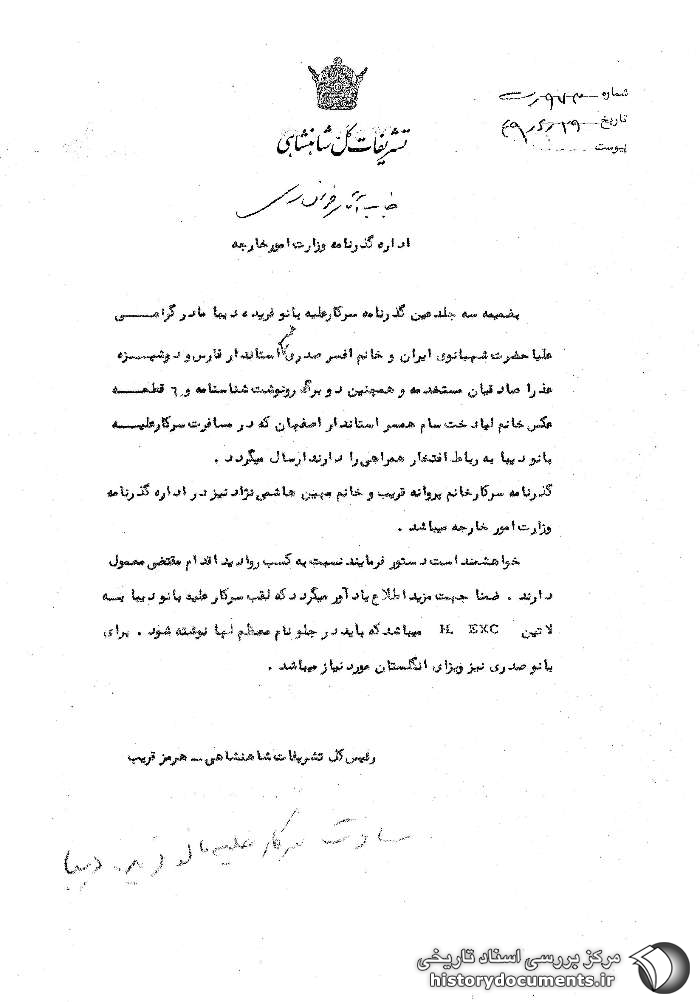 شماره
تاریخ ۴۹/۶/۲۹
پیوست
تشریفات کل شاهنشاهی
جناب آقای
اداره گذرنامه وزارت امور خارجه
بضمیمه سه جلد عین گذرنامه سرکار علیه بانو فریده دیبا مادر گرامی
علیا حضرت شهبانوی ایران و خانم افسر صدری همسر استاندار فارس و دوشیزه
عذرا صادقیان مستخدمه و همچنین دو برگ رونوشت شناسنامه و ٦ قطعه
عکس خانم لیادخت سام همسر استاندار اصفهان که در مسافرت سرکار علیه
بانو دیبا به رباط افتخار همراهی را دارند ارسال میگردد .
گذرنامه سرکار خانم پروانه قریب و خانم مهین هاشمی نژاد نیز در اداره گذرنامه
وزارت امور خارجه میباشد .
خواهشمند است دستور فرمایند نسبت به کسب روادید اقدام مقتضی معمول
دارند . ضمنا جهت مزید اطلاع یادآور میگردد که لقب سرکار علیه بانو دیبا به
لاتین H. EXC میباشد که باید در جلو نام معظم لها نوشته شود . برای
بانو صدری نیز ویزای انگلستان مورد نیاز میباشد .
رئیس کل تشریفات شاهنشاهی ـ هرمز قریب
سرکار علیه بانو فریده دیبا
مرکز بررسی اسناد تاریخی
historydocuments.ir